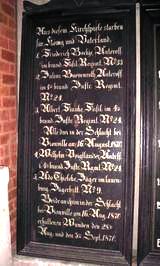 Aus diesem Kirchspiele starben
für Koenig und Vaterland.
1. Friedrich Beckge, Unteroff.
im brand. Füsl. Regimt. Nº 35
2. Unteroff.
im 4t brand. Inftr. Regimt.
Nº 24.
3. Albert Franke, Füsl. im 4t
brand. Inftr. Regimt. Nº 24.
Alle drei in der Schlacht bei
Vionville am 16. August 1870.
4. Wilhelm Voigtländer, Musktr.
i. 4t brand. Inftr. Regmt. Nº 24.
5. Jäger im lauen-
burg. Jägerbatt. Nº 9.
Beide an ihren in der Schlacht
bei Vionville am 16. Aug. 1870
erhaltenen Wunden den 28.
Aug. und den Sept. 1870.